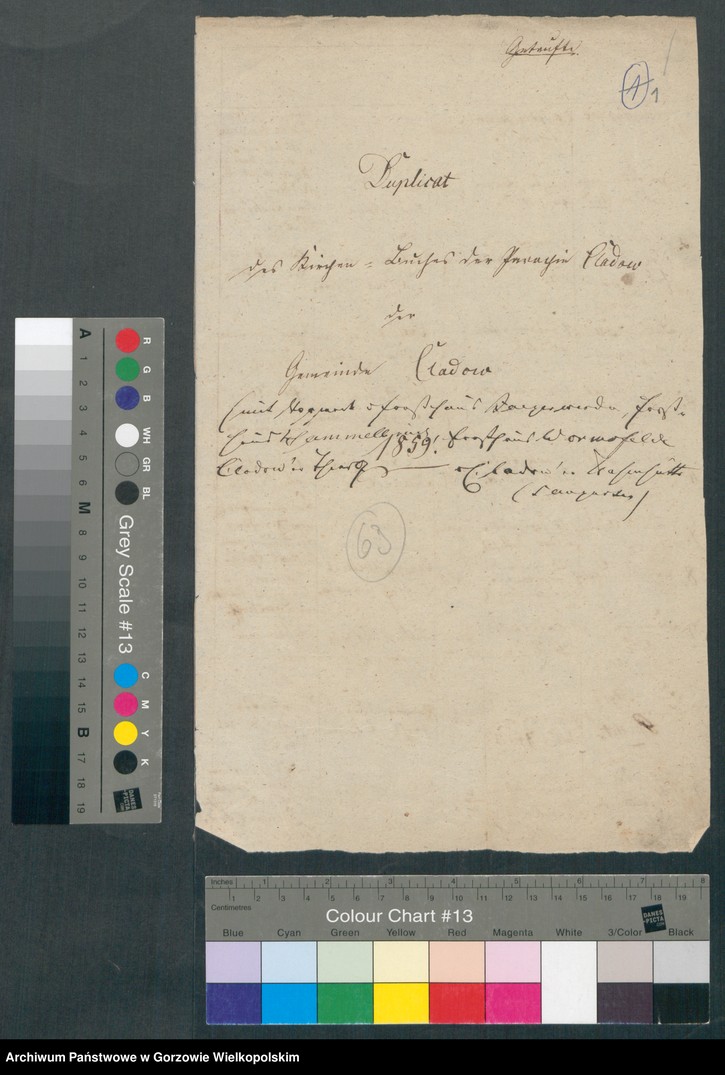 Getaufte.
1 1
Duplicat
des Kirchen-Buches der Parochie Cladow
der
Gemeinde Cladow
(mit Forsthaus
1859. Forsthaus
Cladow'er Theer Cladow'er
63
A 1 2 3 4 5 6 M 8 9 10 11 12 13 14 15 B 17 18 19
R G B WH GR BL
Grey Scale #13
C M Y K
DANES-PICTA
Inches 1 2 3 4 5 6 7 8
Centimetres 1 2 3 4 5 6 7 8 9 10 11 12 13 14 15 16 17 18 19
Colour Chart #13
DANES-PICTA.com
Blue Cyan Green Yellow Red Magenta White 3/Color Black
Archiwum Państwowe w Gorzowie Wielkopolskim